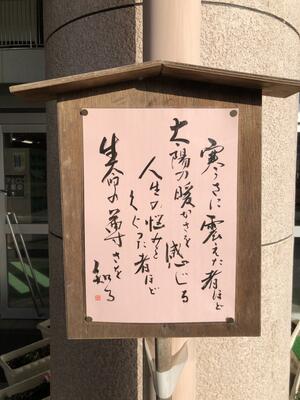 寒さに震えた者ほど
太陽の暖かさを感じる
人生の悩みを
くぐった者ほど
生命の尊さを
知る